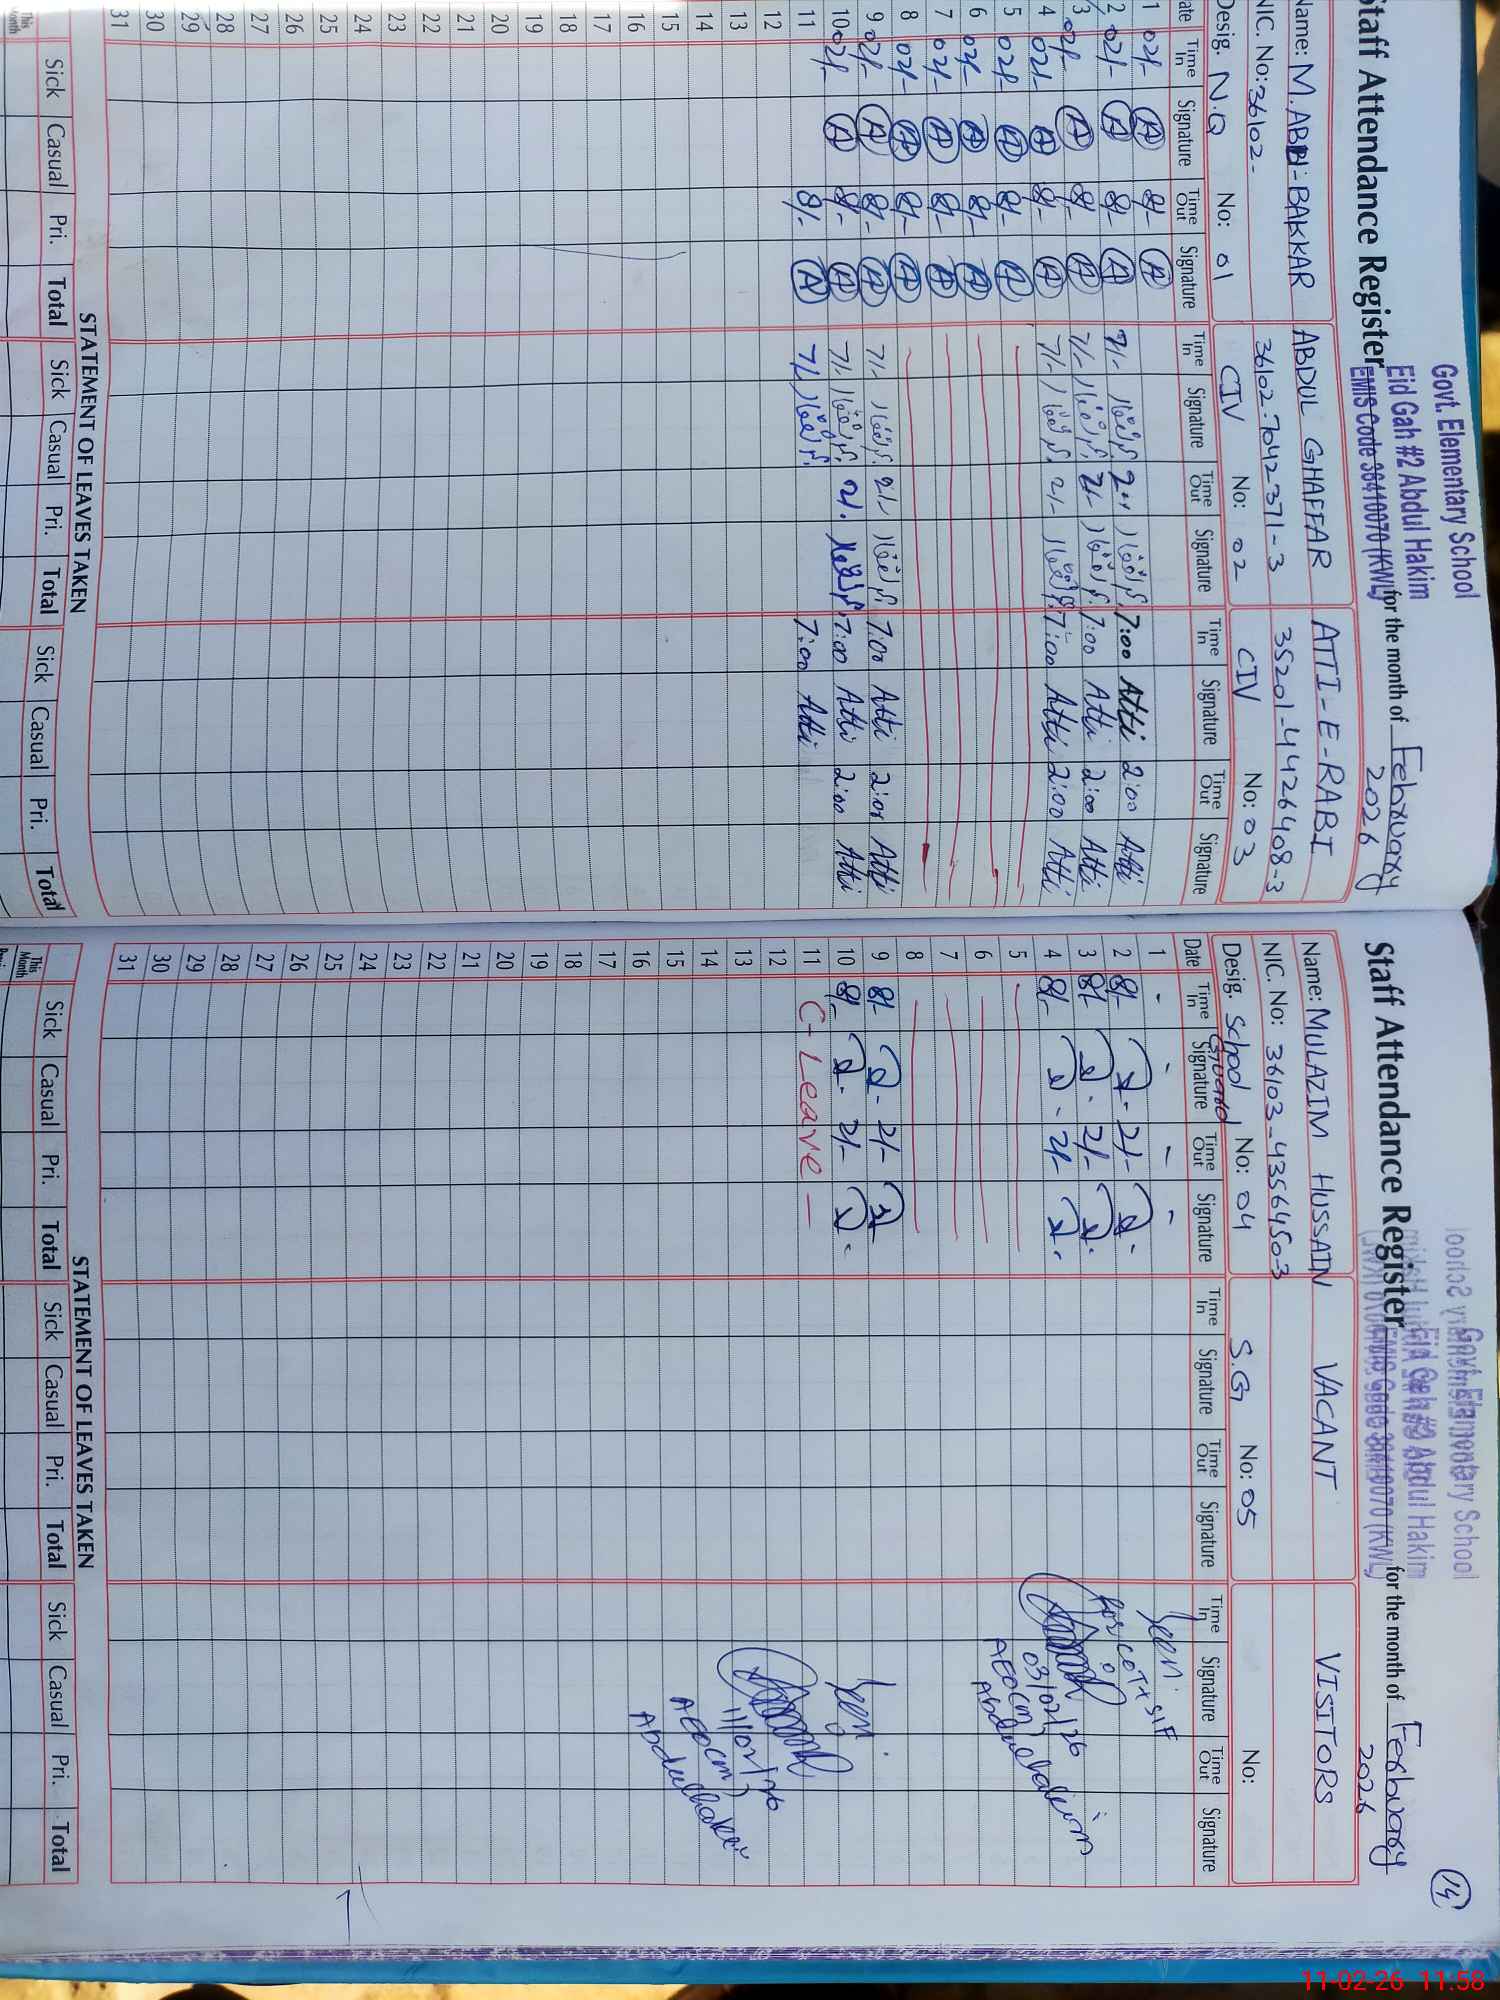 Govt. Elementary School
Eid Gah #2 Abdul Hakim
EMIS Code 36410070 (KWL)
Staff Attendance Register for the month of February
2026
Name: M. ABU-BAKKAR ABDUL GHAFFAR ATTI-E-RABI
NIC. No: 36102- 36102-7042371-3 35201-4426408-3
Desig. N.Q No: 01 CIV No: 02 CIV No: 03
Date Time In Signature Time Out Signature Time In Signature Time Out Signature Time In Signature Time Out Signature
1 02/- A 8/- A
2 02/- A 8/- A 7/- 2/- 7:00 Atti 2:00 Atti
3 02/- A 8/- A 7/- 2/- 7:00 Atti 2:00 Atti
4 02/- A 8/- A 7/- 2/- 7:00 Atti 2:00 Atti
5 02/- A 8/- A
6 02/- A 8/- A
7 02/- A 8/- A
8 02/- A 8/- A
9 02/- A 8/- A 7/- 2/- 7:00 Atti 2:00 Atti
10 02/- A 8/- A 7/- 2/- 7:00 Atti 2:00 Atti
11 8/- A 7/- 7:00 Atti
12
13
14
15
16
17
18
19
20
21
22
23
24
25
26
27
28
29
30
31
STATEMENT OF LEAVES TAKEN
Sick Casual Pri. Total Sick Casual Pri. Total Sick Casual Pri. Total
This Month
14
Govt. Elementary School
Eid Gah #2 Abdul Hakim
EMIS Code 36410070 (KWL)
Staff Attendance Register for the month of February
2026
Name: MULAZIM HUSSAIN VACANT VISITORS
NIC. No: 36103-4356450-3
Desig. School Guard No: 04 S.G No: 05 No:
Date Time In Signature Time Out Signature Time In Signature Time Out Signature Time In Signature Time Out Signature
1 - - - -
2 8/- 2/-
3 8/- 2/-
4 8/- 2/-
5
6
7
8
9 8/- 2/-
10 8/- 2/-
11 C-Leave -
12
13
14
15
16
17
18
19
20
21
22
23
24
25
26
27
28
29
30
31
Seen.
for COT & SIF
03/02/26
AEO(m)
Abdulhakim
Seen.
11/02/26
AEO(m)
Abdulhakim
STATEMENT OF LEAVES TAKEN
Sick Casual Pri. Total Sick Casual Pri. Total Sick Casual Pri. Total
This Month
11-02-26 11:58